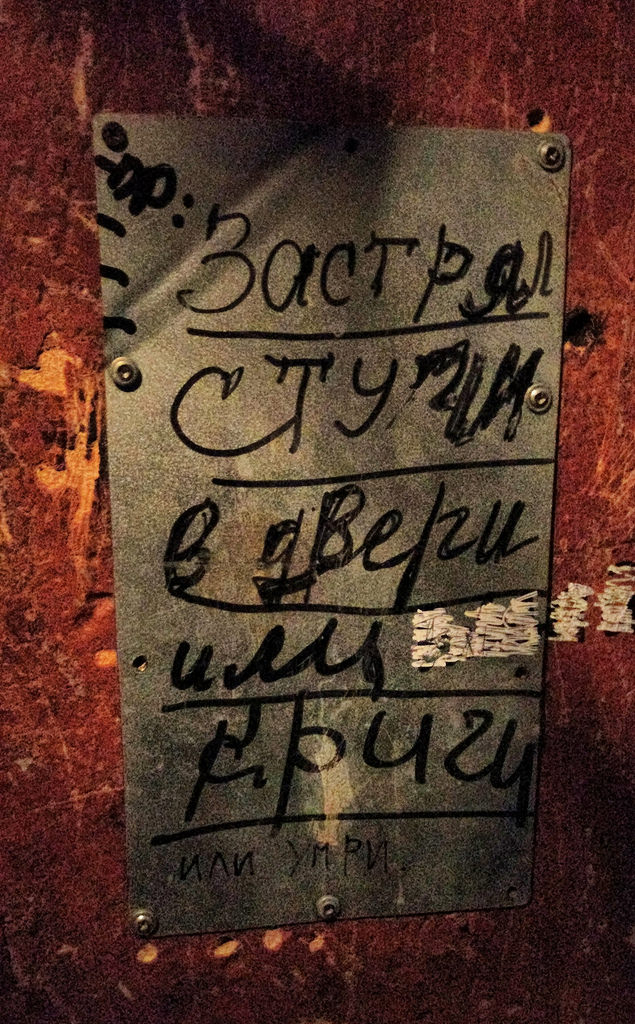 Застрял
стучи
в двери
или
кричи
или умри.